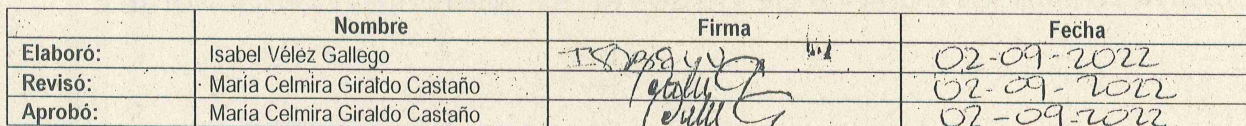 Nombre Firma Fecha
Elaboró: Isabel Vélez Gallego 02-09-2022
Revisó: María Celmira Giraldo Castaño 02-09-2022
Aprobó: María Celmira Giraldo Castaño 02-09-2022